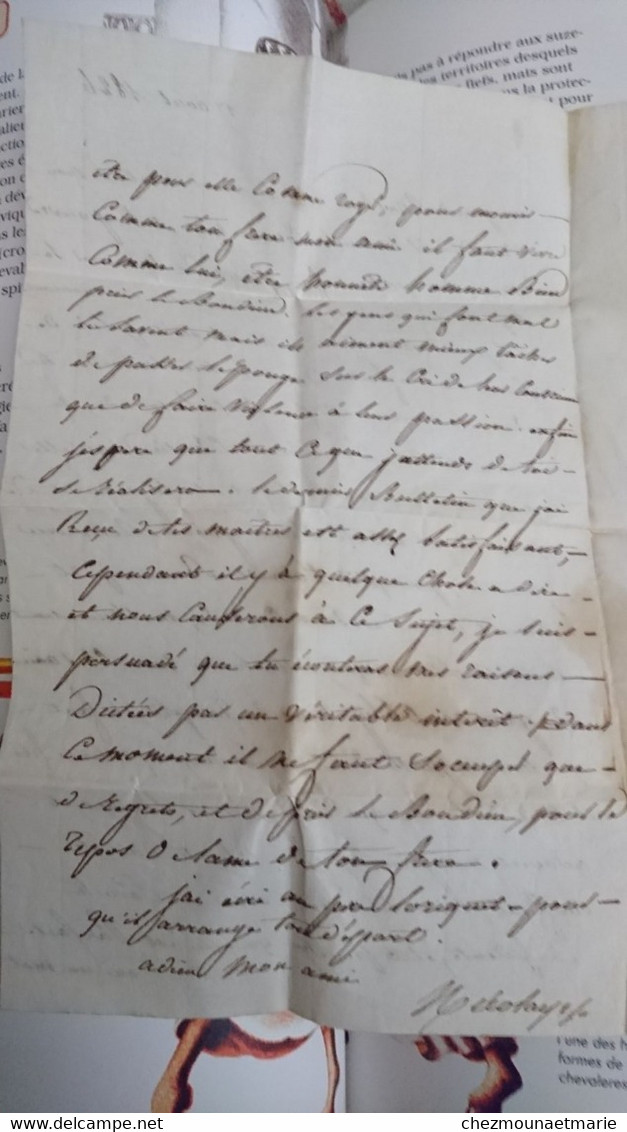 août 1826
être pour elle comme moi; pour mourir
comme ton frere mon ami il faut vivre
comme lui, être honnête homme Bien
prier le Bondieu. les gens qui font mal
le savent mais ils aiment mieux tâcher
de passer l'éponge sur le Cri de leur
que de faire à leur passion. enfin
j'espere que tout ce que j'attends de toi
se réalisera. le dernier Bulletin que j'ai
Reçu de tes maitres est assez satisfaisant,
cependant il y à quelque chose a dire
et nous causerons à ce sujet, je suis
persuadé que tu écouteras mes raisons
Dictées par un véritable interêt. dans
ce moment il ne faut s'occuper que
de regrets, et de prier le Bondieu, pour le
repos de l'ame de ton frere.
j'ai écri au pour
qu'il arrange ton départ.
adieu mon ami
pas à répondre aux suze-
es territoires desquels
fiefs, mais sont
la protec-
pour
l'une des h
formes de
chevaleres
chezmounaetmarie